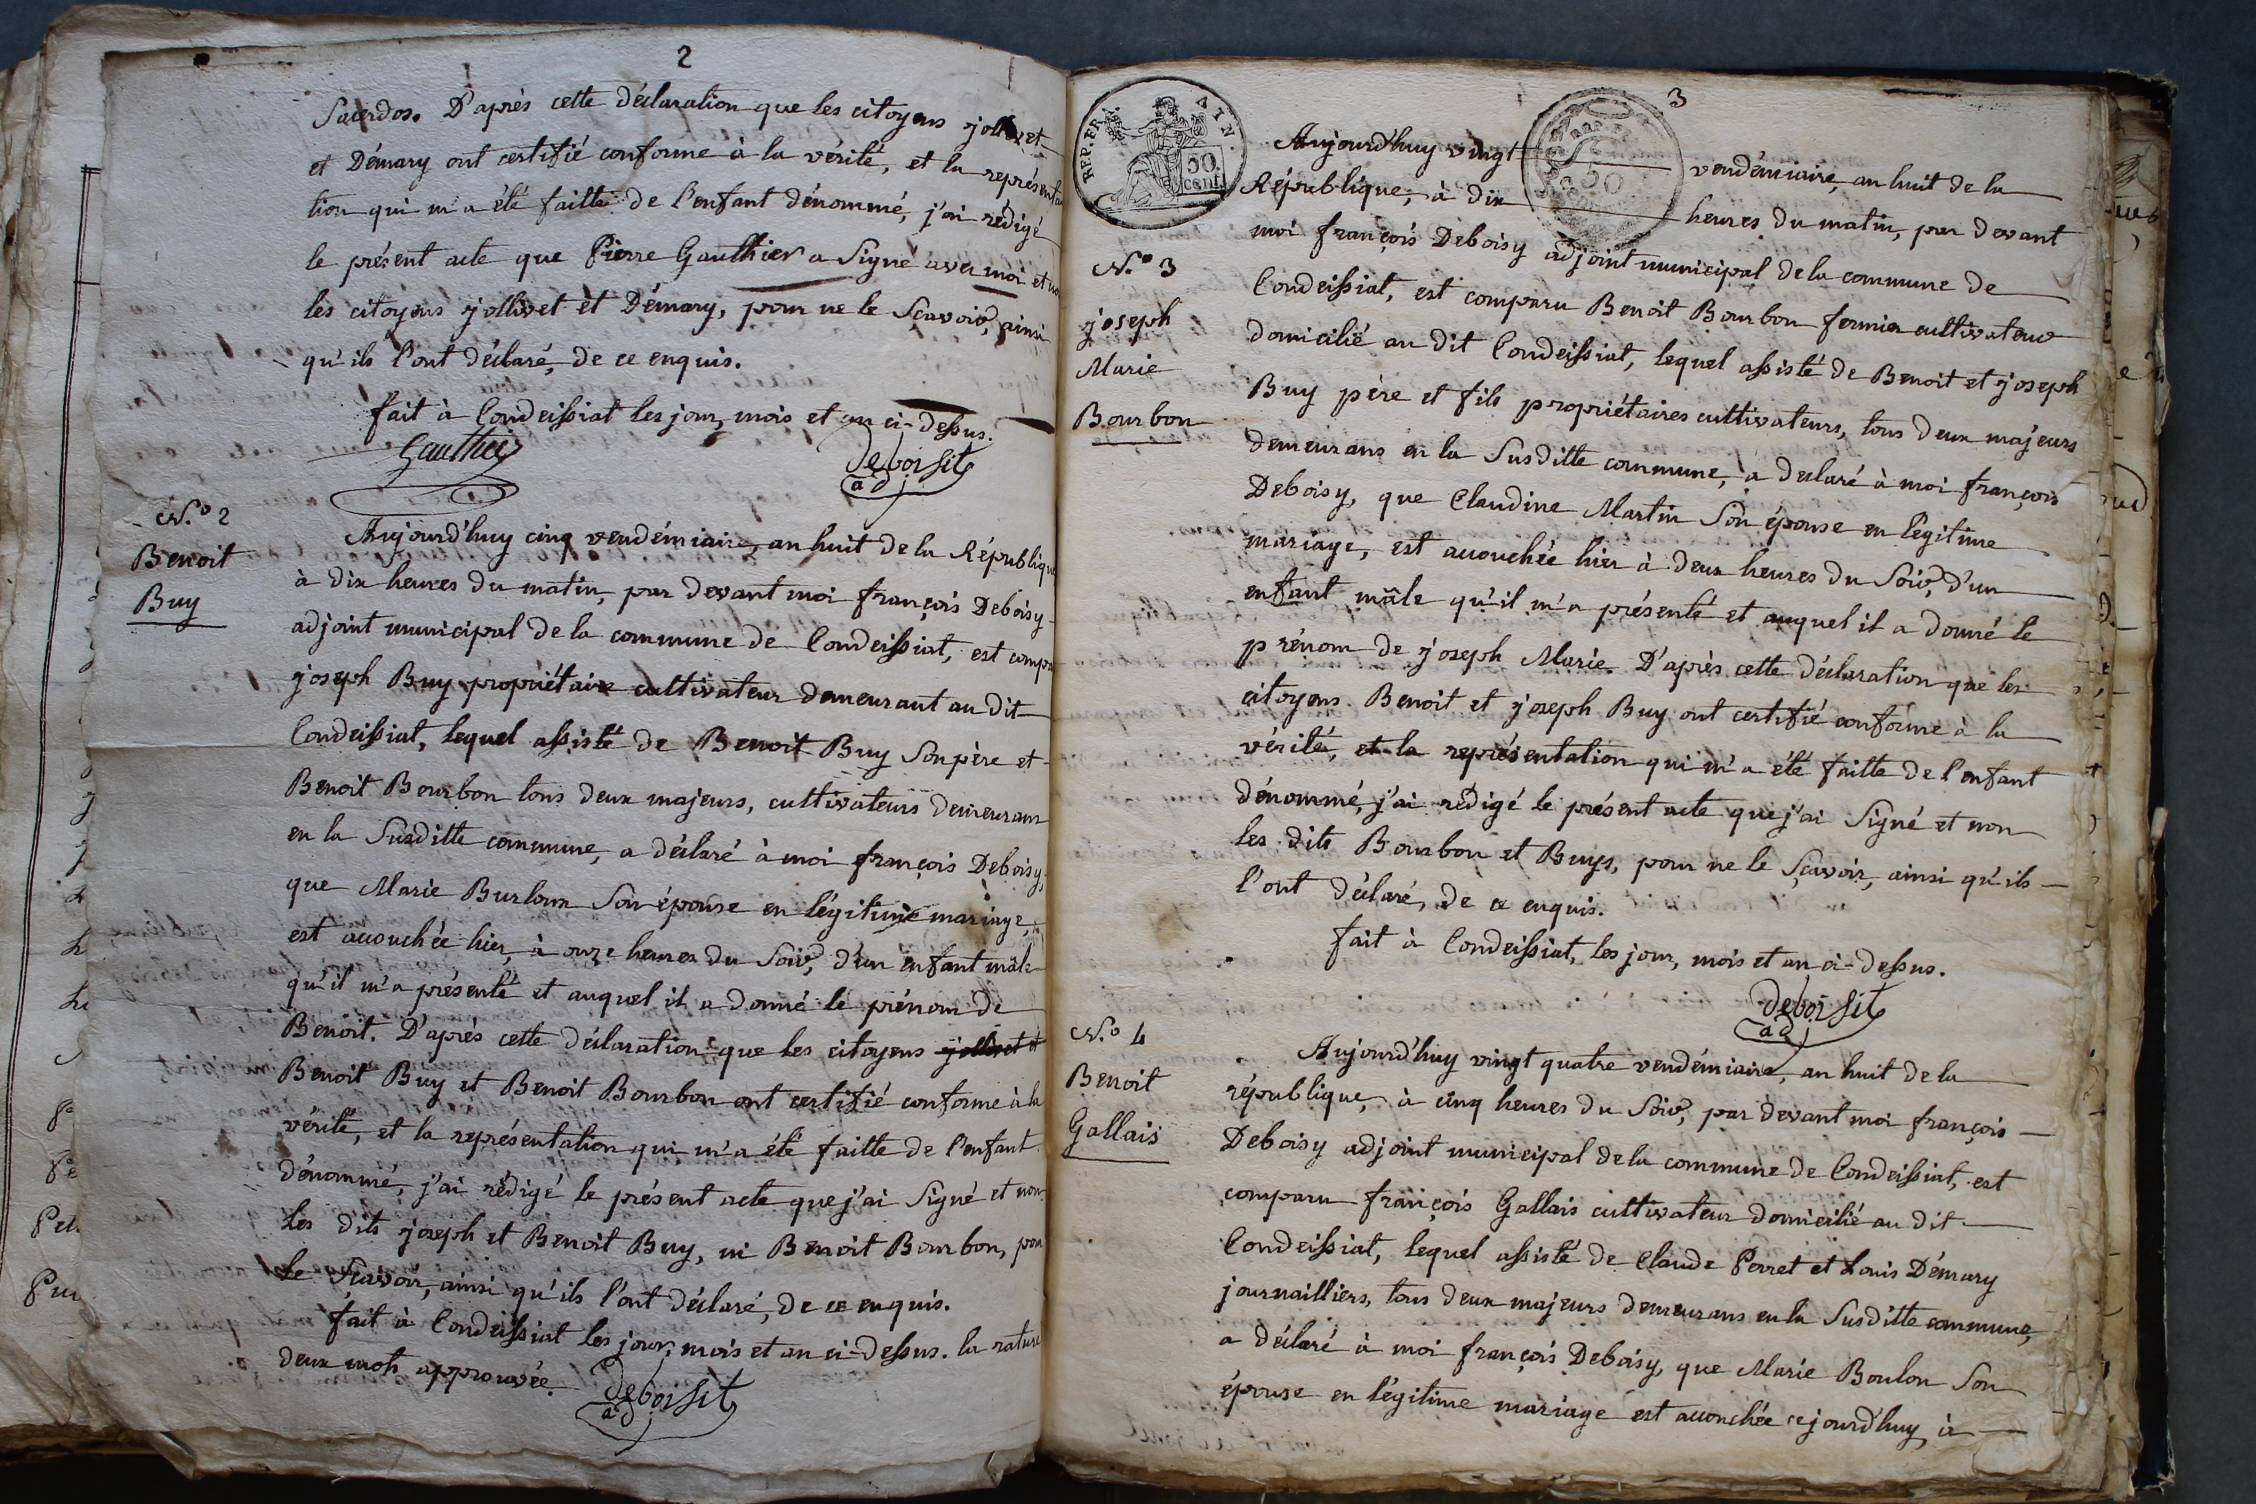 2
Sacerdos. D'après cette déclaration que les citoyens jollivet
et Démary ont certifié conforme à la vérité, et la représenta
tion qui m'a été faitte de l'enfant dénommé, j'ai rédigé
le présent acte que Pierre Gauthier a signé avec moi et non
les citoyens jollivet et Démary, pour ne le sçavoir, ainsi
qu'ils l'ont déclaré, de ce enquis.
fait à Condeissiat les jour, mois et an ci-dessus.
Gauthier
deboisit
adj
N.º 2
Benoit
Buy
Aujourd'huy cinq vendémiaire, an huit de la République
à dix heures du matin, par devant moi françois Deboisy
adjoint municipal de la commune de Condeissiat, est compa
joseph Buy propriétaire cultivateur demeurant au dit
Condeissiat, lequel assisté de Benoit Buy son père et
Benoit Bourbon tous deux majeurs, cultivateurs demeurans
en la susditte commune, a déclaré à moi françois Deboisy,
que Marie Burloux son épouse en légitime mariage,
est accouchée hier, à onze heures du soir, d'un enfant mâle
qu'il m'a présenté et auquel il a donné le prénom de
Benoit. D'après cette déclaration que les citoyens jollivet et
Benoit Buy et Benoit Bourbon ont certifié conforme à la
vérité, et la représentation qui m'a été faitte de l'enfant
dénommé, j'ai rédigé le présent acte que j'ai signé et non
les dits joseph et Benoit Buy, ni Benoit Bourbon, pour
le sçavoir, ainsi qu'ils l'ont déclaré, de ce enquis.
fait à Condeissiat les jour, mois et an ci-dessus. la rature
deux mots approuvée.
deboisit
adj
3
REP. FRA.
50
cent.
50
Aujourd'huy vingt vendémiaire, an huit de la
République, à dix heures du matin, par devant
moi françois Deboisy adjoint municipal de la commune de
Condeissiat, est comparu Benoit Bourbon fermier cultivateur
domicilié au dit Condeissiat, lequel assisté de Benoit et joseph
Buy père et fils propriétaires cultivateurs, tous deux majeurs
demeurans en la susditte commune, a declaré à moi françois
Deboisy, que Claudine Martin son épouse en légitime
mariage, est accouchée hier à deux heures du soir, d'un
enfant mâle qu'il m'a présenté et auquel il a donné le
prénom de joseph Marie. D'après cette déclaration que les
citoyens Benoit et joseph Buy ont certifié conforme à la
vérité, et la représentation qui m'a été faitte de l'enfant
dénommé, j'ai rédigé le présent acte que j'ai signé et non
les dits Bourbon et Buys, pour ne le sçavoir, ainsi qu'ils
l'ont déclaré, de ce enquis.
fait à Condeissiat, les jour, mois et an ci-dessus.
deboisit
adj
N.º 3
joseph
Marie
Bourbon
N.º 4
Benoit
Gallais
Aujourd'huy vingt quatre vendémiaire, an huit de la
république, à cinq heures du soir, par devant moi françois
Deboisy adjoint municipal de la commune de Condeissiat, est
comparu françois Gallais cultivateur domicilié au dit
Condeissiat, lequel assisté de Claude Perret et Louis Démary
journailliers, tous deux majeurs demeurans en la susditte commune,
a déclaré à moi françois Deboisy, que Marie Boulon son
épouse en légitime mariage est accouchée cejourd'huy, à